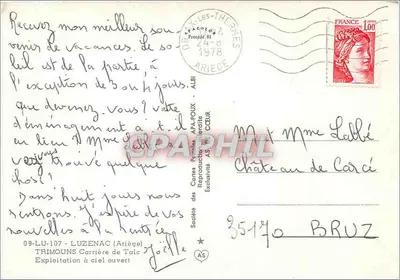 Recevez mon meilleur sou
venir de vacances. le so
leil est de la partie, à
l'exception de 3 ou 4 jours.
que devenez vous? votre
déménagement a t-il
eu lieu? Mme
vous trouvé quelque
chose!
Dans huit jours nous
rentrons. J'espère de vos
nouvelles à la rentrée
Joëlle
09-LU-107 - LUZENAC (Ariège)
TRIMOUNS Carrière de Talc
Exploitation à ciel ouvert
Société des Cartes Postales APA-POUX - ALBI
Reproduction interdite
Exclusivité AS DE CŒUR
AS
AX-LES-THERMES
24-8
1978
ARIEGE
FRANCE
1,00
M et Mme Labbé
Château de Carcé
35170 BRUZ
SPARTHIL